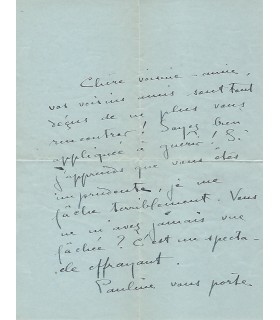 Chère voisine-amie,
vos voisins amis sont tout
déçus de ne plus vous
rencontrer! Soyez bien
appliquée à guérir! Si
j'apprends que vous êtes
imprudente, je me
fâche terriblement. Vous
ne m'avez jamais vue
fâchée? C'est un specta-
cle effrayant.
Pauline vous porte